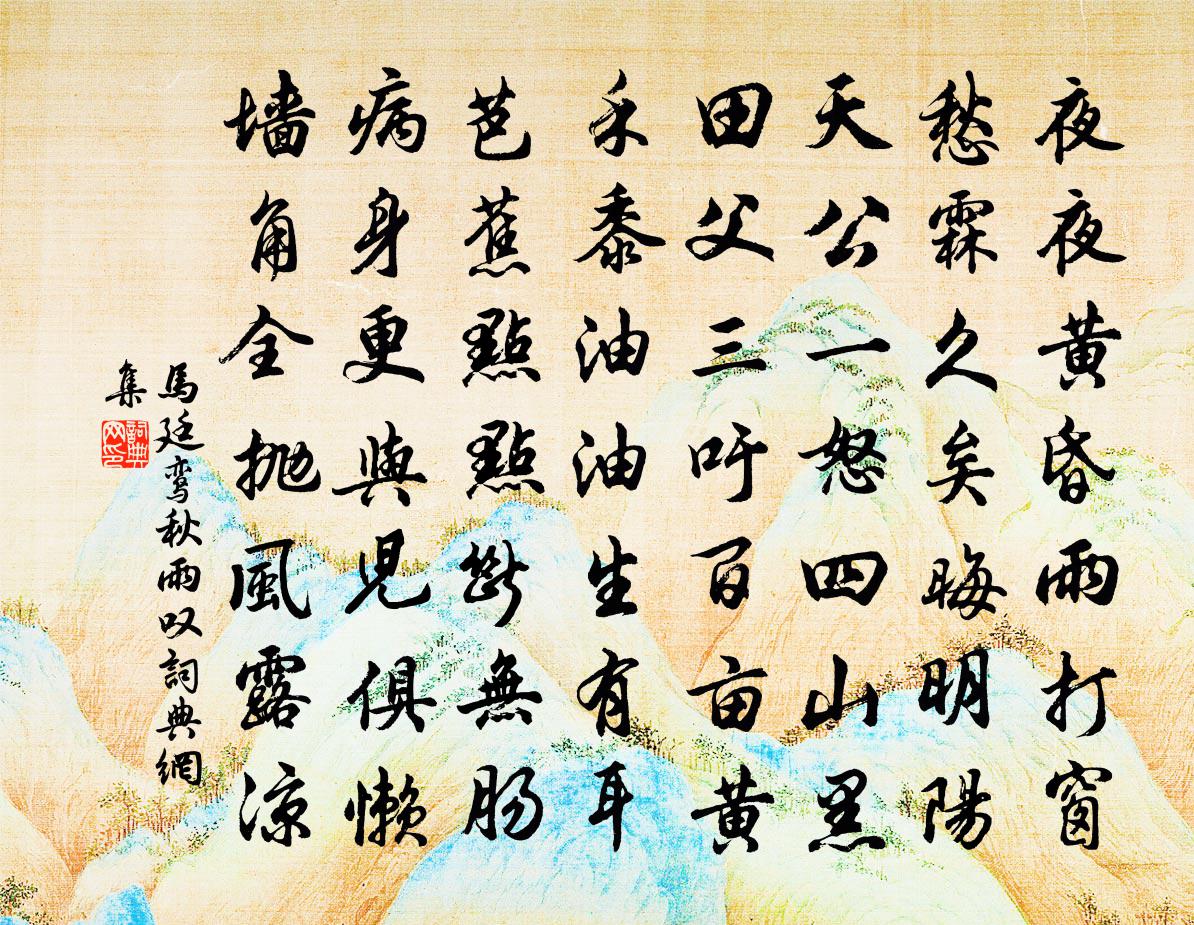 夜夜黄昏雨打窗
愁霖久矣晦明陽
天公一怒四山黑
田父三吁百亩黄
禾黍油油生有耳
芭蕉點點斷無肠
病身更與児俱懒
墙角全抛風露涼
馬廷鸾秋雨叹詞典網
集
詞典
网印